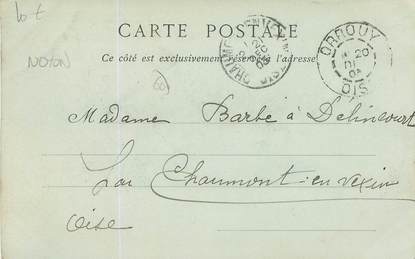 CARTE POSTALE
Ce côté est exclusivement réservé à l'adresse
NOYON
60
ORROUY
20
OISE
Madame Barbé à Delincourt
par Chaumont-en-Vexin
Oise